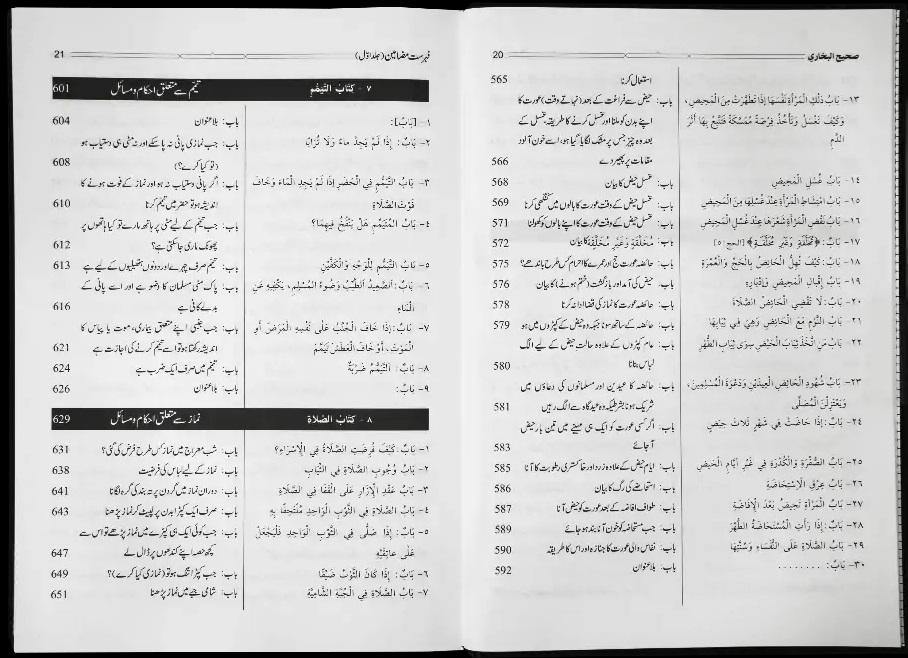 صحیح البخاری 20
۱۳- بَابُ دَلْكِ الْمَرْأَةِ نَفْسَهَا إِذَا تَطَهَّرَتْ مِنَ الْمَحِيضِ،
وَكَيْفَ تَغْتَسِلُ وَتَأْخُذُ فِرْصَةً مُمَسَّكَةً فَتَتَّبِعُ بِهَا أَثَرَ
الدَّمِ
۱٤- بَابُ غُسْلِ الْمَحِيضِ
۱٥- بَابُ امْتِشَاطِ الْمَرْأَةِ عِنْدَ غُسْلِهَا مِنَ الْمَحِيضِ
۱٦- بَابُ نَقْضِ الْمَرْأَةِ شَعْرَهَا عِنْدَ غُسْلِ الْمَحِيضِ
۱۷- بَابٌ: ﴿مُخَلَّقَةٍ وَغَيْرِ مُخَلَّقَةٍ﴾ [الحج:٥]
۱۸- بَابٌ: كَيْفَ تُهِلُّ الْحَائِضُ بِالْحَجِّ وَالْعُمْرَةِ
۱۹- بَابُ إِقْبَالِ الْمَحِيضِ وَإِدْبَارِهِ
۲۰- بَابٌ: لَا تَقْضِي الْحَائِضُ الصَّلَاةَ
۲۱- بَابُ النَّوْمِ مَعَ الْحَائِضِ وَهِيَ فِي ثِيَابِهَا
۲۲- بَابُ مَنِ اتَّخَذَ ثِيَابَ الْحَيْضِ سِوَى ثِيَابِ الطُّهْرِ
۲۳- بَابُ شُهُودِ الْحَائِضِ الْعِيدَيْنِ وَدَعْوَةَ الْمُسْلِمِينَ،
وَيَعْتَزِلْنَ الْمُصَلَّى
۲٤- بَابٌ: إِذَا حَاضَتْ فِي شَهْرٍ ثَلَاثَ حِيَضٍ
۲٥- بَابُ الصُّفْرَةِ وَالْكُدْرَةِ فِي غَيْرِ أَيَّامِ الْحَيْضِ
۲٦- بَابُ عِرْقِ الْاِسْتِحَاضَةِ
۲۷- بَابُ الْمَرْأَةِ تَحِيضُ بَعْدَ الْإِفَاضَةِ
۲۸- بَابٌ: إِذَا رَأَتِ الْمُسْتَحَاضَةُ الطُّهْرَ
۲۹- بَابُ الصَّلَاةِ عَلَى النُّفَسَاءِ وَسُنَّتِهَا
۳۰- بَابٌ: ........
استعمال کرنا 565
باب: حیض سے فراغت کے بعد (نہاتے وقت) عورت کا
اپنے بدن کو ملنا اور غسل کرنے کا طریقہ، غسل کے
بعد وہ چیز جس پر مشک لگایا گیا ہو، اسے خون آلود
مقامات پر پھیر دے 566
باب: غسل حیض کا بیان 568
باب: غسل حیض کے وقت عورت کا بالوں میں کنگھی کرنا 569
باب: غسل حیض کے وقت عورت کا اپنے بالوں کو کھولنا 571
باب: مُخَلَّقَةٍ وَغَيْرِ مُخَلَّقَةٍ کا بیان 572
باب: حائضہ عورت حج اور عمرے کا احرام کس طرح باندھے؟ 575
باب: حیض کی آمد اور بازگشت (ختم ہونے) کا بیان 576
باب: حائضہ عورت کا نماز کی قضا نہ کرنا 578
باب: حائضہ کے ساتھ سونا جبکہ وہ حیض کے کپڑوں میں ہو 579
باب: عام کپڑوں کے علاوہ حالت حیض کے لیے الگ
لباس بنانا 580
باب: حائضہ کا عیدین اور مسلمانوں کی دعاؤں میں
شریک ہونا بشرطیکہ وہ عید گاہ سے الگ رہیں 581
باب: اگر کسی عورت کو ایک ہی مہینے میں تین بار حیض
آجائے 583
باب: ایام حیض کے علاوہ زرد اور خاکستری رطوبت کا آنا 585
باب: استحاضے کی رگ کا بیان 586
باب: طواف افاضہ کے بعد عورت کو حیض آنا 587
باب: جب مستحاضہ کو خون آنا بند ہو جائے 589
باب: نفاس والی عورت کا جنازہ اور اس کا طریقہ 590
باب: بلا عنوان 592
فہرست مضامین (جلد اوّل) 21
۷ - كتاب التيمم تیمم سے متعلق احکام و مسائل 601
۱- [بَابٌ]:
۲- بَابٌ: إِذَا لَمْ يَجِدْ مَاءً وَلَا تُرَابًا
۳- بَابُ التَّيَمُّمِ فِي الْحَضَرِ إِذَا لَمْ يَجِدِ الْمَاءَ وَخَافَ
فَوْتَ الصَّلَاةِ
٤- بَابُ الْمُتَيَمِّمِ هَلْ يَنْفُخُ فِيهِمَا؟
٥- بَابُ التَّيَمُّمِ لِلْوَجْهِ وَالْكَفَّيْنِ
٦- بَابٌ: اَلصَّعِيدُ الطَّيِّبُ وَضُوءُ الْمُسْلِمِ، يَكْفِيهِ عَنِ
الْمَاءِ
۷- بَابٌ: إِذَا خَافَ الْجُنُبُ عَلَى نَفْسِهِ الْمَرَضَ أَوِ
الْمَوْتَ، أَوْ خَافَ الْعَطَشَ تَيَمَّمَ
۸- بَابٌ: اَلتَّيَمُّمُ ضَرْبَةٌ
۹- بَابٌ:
باب: بلا عنوان 604
باب: جب نمازی پانی نہ پا سکے اور نہ مٹی ہی دستیاب ہو
(تو کیا کرے؟) 608
باب: اگر پانی دستیاب نہ ہو اور نماز کے فوت ہونے کا
اندیشہ ہو تو حضر میں تیمم کرنا 610
باب: جب تیمم کے لیے مٹی پر ہاتھ مارے تو کیا ہاتھوں پر
پھونک ماری جا سکتی ہے؟ 612
باب: تیمم صرف چہرے اور دونوں ہتھیلیوں کے لیے ہے 613
باب: پاک مٹی مسلمان کا وضو ہے اور اسے پانی کے
بدلے کافی ہے 616
باب: جب جنبی اپنے متعلق بیماری، موت یا پیاس کا
اندیشہ رکھتا ہو تو اسے تیمم کرنے کی اجازت ہے 621
باب: تیمم میں صرف ایک ضرب ہے 624
باب: بلا عنوان 626
۸ - كتاب الصلاة نماز سے متعلق احکام و مسائل 629
۱- بَابٌ: كَيْفَ فُرِضَتِ الصَّلَاةُ فِي الْإِسْرَاءِ؟
۲- بَابُ وُجُوبِ الصَّلَاةِ فِي الثِّيَابِ
۳- بَابُ عَقْدِ الْإِزَارِ عَلَى الْقَفَا فِي الصَّلَاةِ
٤- بَابُ الصَّلَاةِ فِي الثَّوْبِ الْوَاحِدِ مُلْتَحِفًا بِهِ
٥- بَابٌ: إِذَا صَلَّى فِي الثَّوْبِ الْوَاحِدِ فَلْيَجْعَلْ
عَلَى عَاتِقَيْهِ
٦- بَابٌ: إِذَا كَانَ الثَّوْبُ ضَيِّقًا
۷- بَابُ الصَّلَاةِ فِي الْجُبَّةِ الشَّامِيَّةِ
باب: شب معراج میں نماز کس طرح فرض کی گئی؟ 631
باب: نماز کے لیے لباس کی فرضیت 638
باب: دوران نماز میں گردن پر تہ بند کی گرہ لگانا 641
باب: صرف ایک کپڑا بدن پر لپیٹ کر نماز پڑھنا 643
باب: جب کوئی ایک ہی کپڑے میں نماز پڑھے تو اس سے
کچھ حصہ اپنے کندھوں پر ڈال لے 647
باب: جب کپڑا تنگ ہو تو (نمازی کیا کرے)؟ 649
باب: شامی جبے میں نماز پڑھنا 651